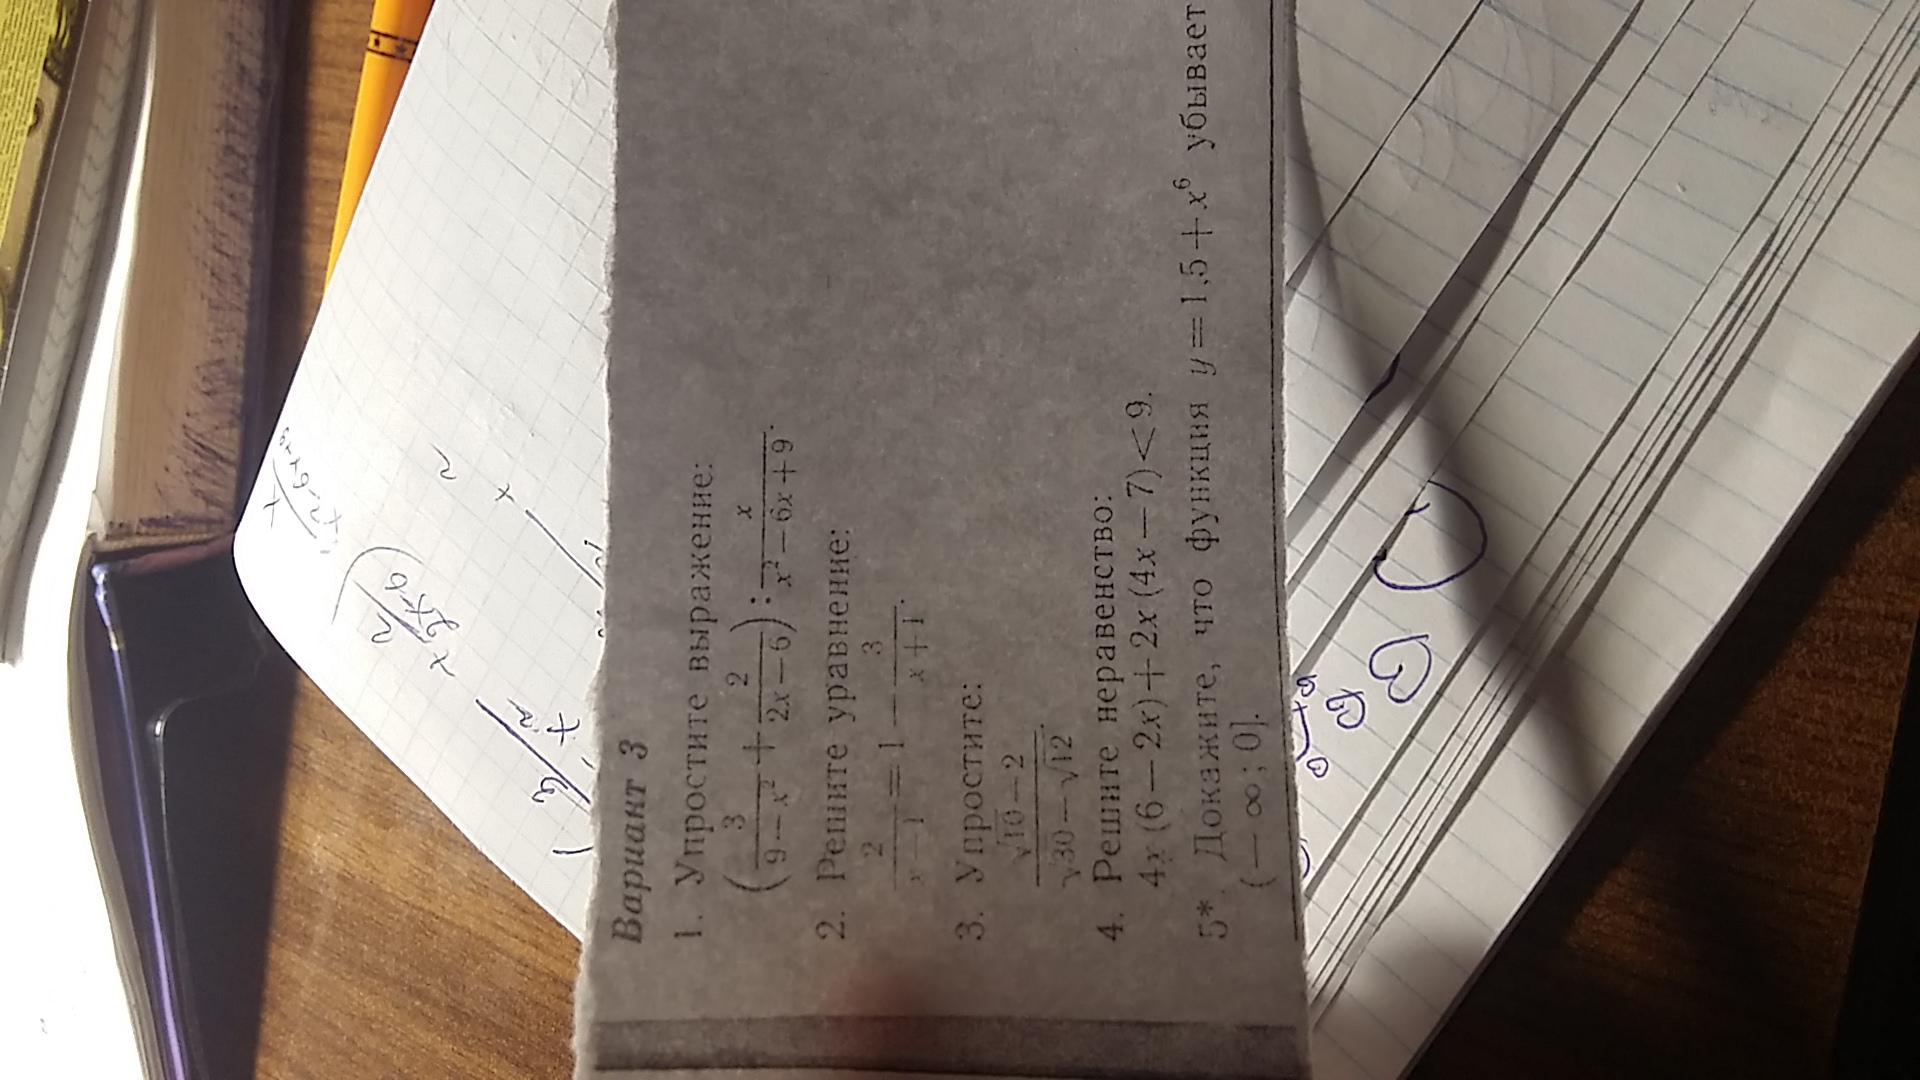 Вариант 3
1. Упростите выражение:
(3/(9 − x²) + 2/(2x − 6)) : x/(x² − 6x + 9).
2. Решите уравнение:
2/(x − 1) = 1 − 3/(x + 1).
3. Упростите:
(√10 − 2)/(√30 − √12).
4. Решите неравенство:
4x(6 − 2x) + 2x(4x − 7) < 9.
5* Докажите, что функция y = 1,5 + x⁶ убывает
(− ∞; 0].